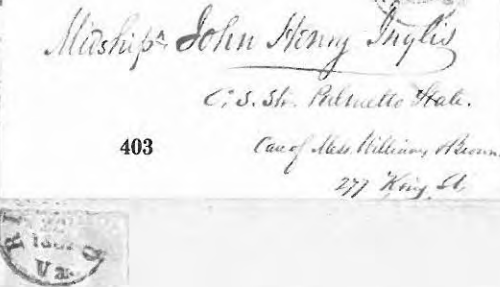 Midship^n John Henry Inglis
C. S. Str. Palmetto State.
403
Care of Mess. Williams & Brown.
277 King St.
Va.